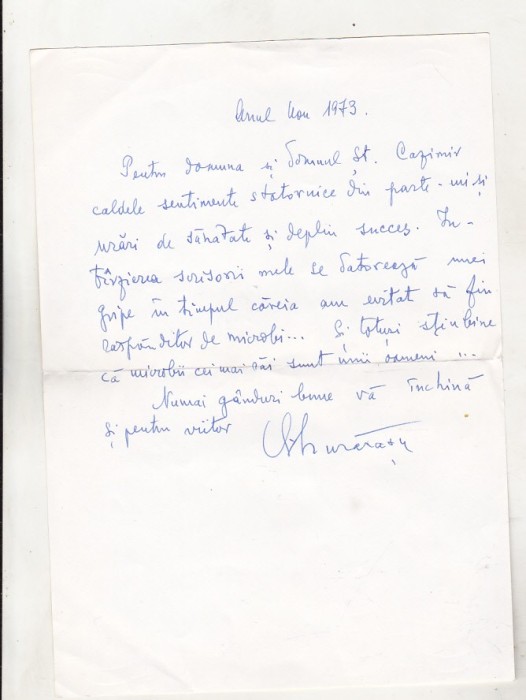 Anul Nou 1973.
Pentru doamna și Domnul Șt. Cazimir
caldele sentimente statornice din parte-mi și
urări de sănătate și deplin succes. În-
tîrzierea scrisorii mele se datorează unei
gripe în timpul căreia am evitat să fiu
răspânditor de microbi... Și totuși știu bine
că microbii cei mai răi sunt unii oameni ...
Numai gânduri bune vă închină
și pentru viitor